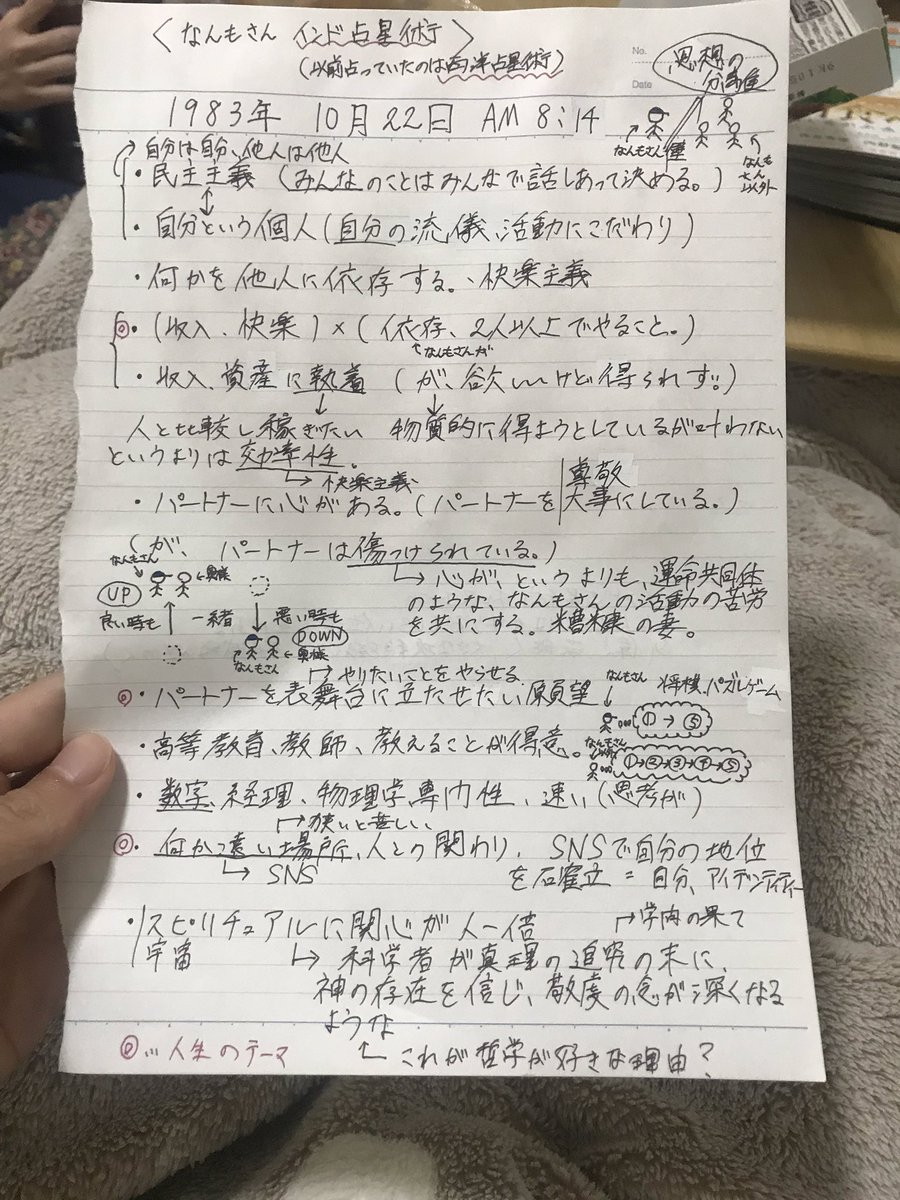 〈なんもさん インド占星術〉
(以前占っていたのは西洋占星術)
No.
Date
思想の
分離
1983年 10月22日 AM 8:14
なんもさん
なんも
さん
以外
自分は自分、他人は他人
・民主主義 (みんなのことはみんなで話しあって決める。)
・自分という個人(自分の流儀、活動にこだわり)
・何かを他人に依存する。、快楽主義
◎・(収入、快楽)×(依存、2人以上でやること。)
なんもさんが
・収入、資産に執着 (が、欲しいけど得られず。)
人と比較し稼ぎたい 物質的に得ようとしているが叶わない
というよりは効率性。
快楽主義
尊敬
・パートナーに心がある。(パートナーを大事にしている。)
(が、パートナーは傷つけられている。)
なんもさん
奥様
心が、というよりも、運命共同体
UP
のような、なんもさんの活動の苦労
良い時も 一緒 悪い時も
を共にする。糟糠の妻。
DOWN
奥様
なんもさん
やりたいことをやらせる
◎・パートナーを表舞台に立たせたい願望
なんもさん 将棋、パズルゲーム
①→⑤
・高等教育、教師、教えることが得意。
なんもさん
以外
①→②→③→④→⑤
・数字、経理、物理学、専門性、速い(思考が)
狭いと苦しい
◎・何か遠い場所、人との関わり、SNSで自分の地位
SNS
を確立=自分、アイデンティティー
・スピリチュアルに関心が人一倍
宇宙
学問の果て
科学者が真理の追究の末に、
神の存在を信じ、敬虔の念が深くなる
ような
◎…人生のテーマ
これが哲学が好きな理由?